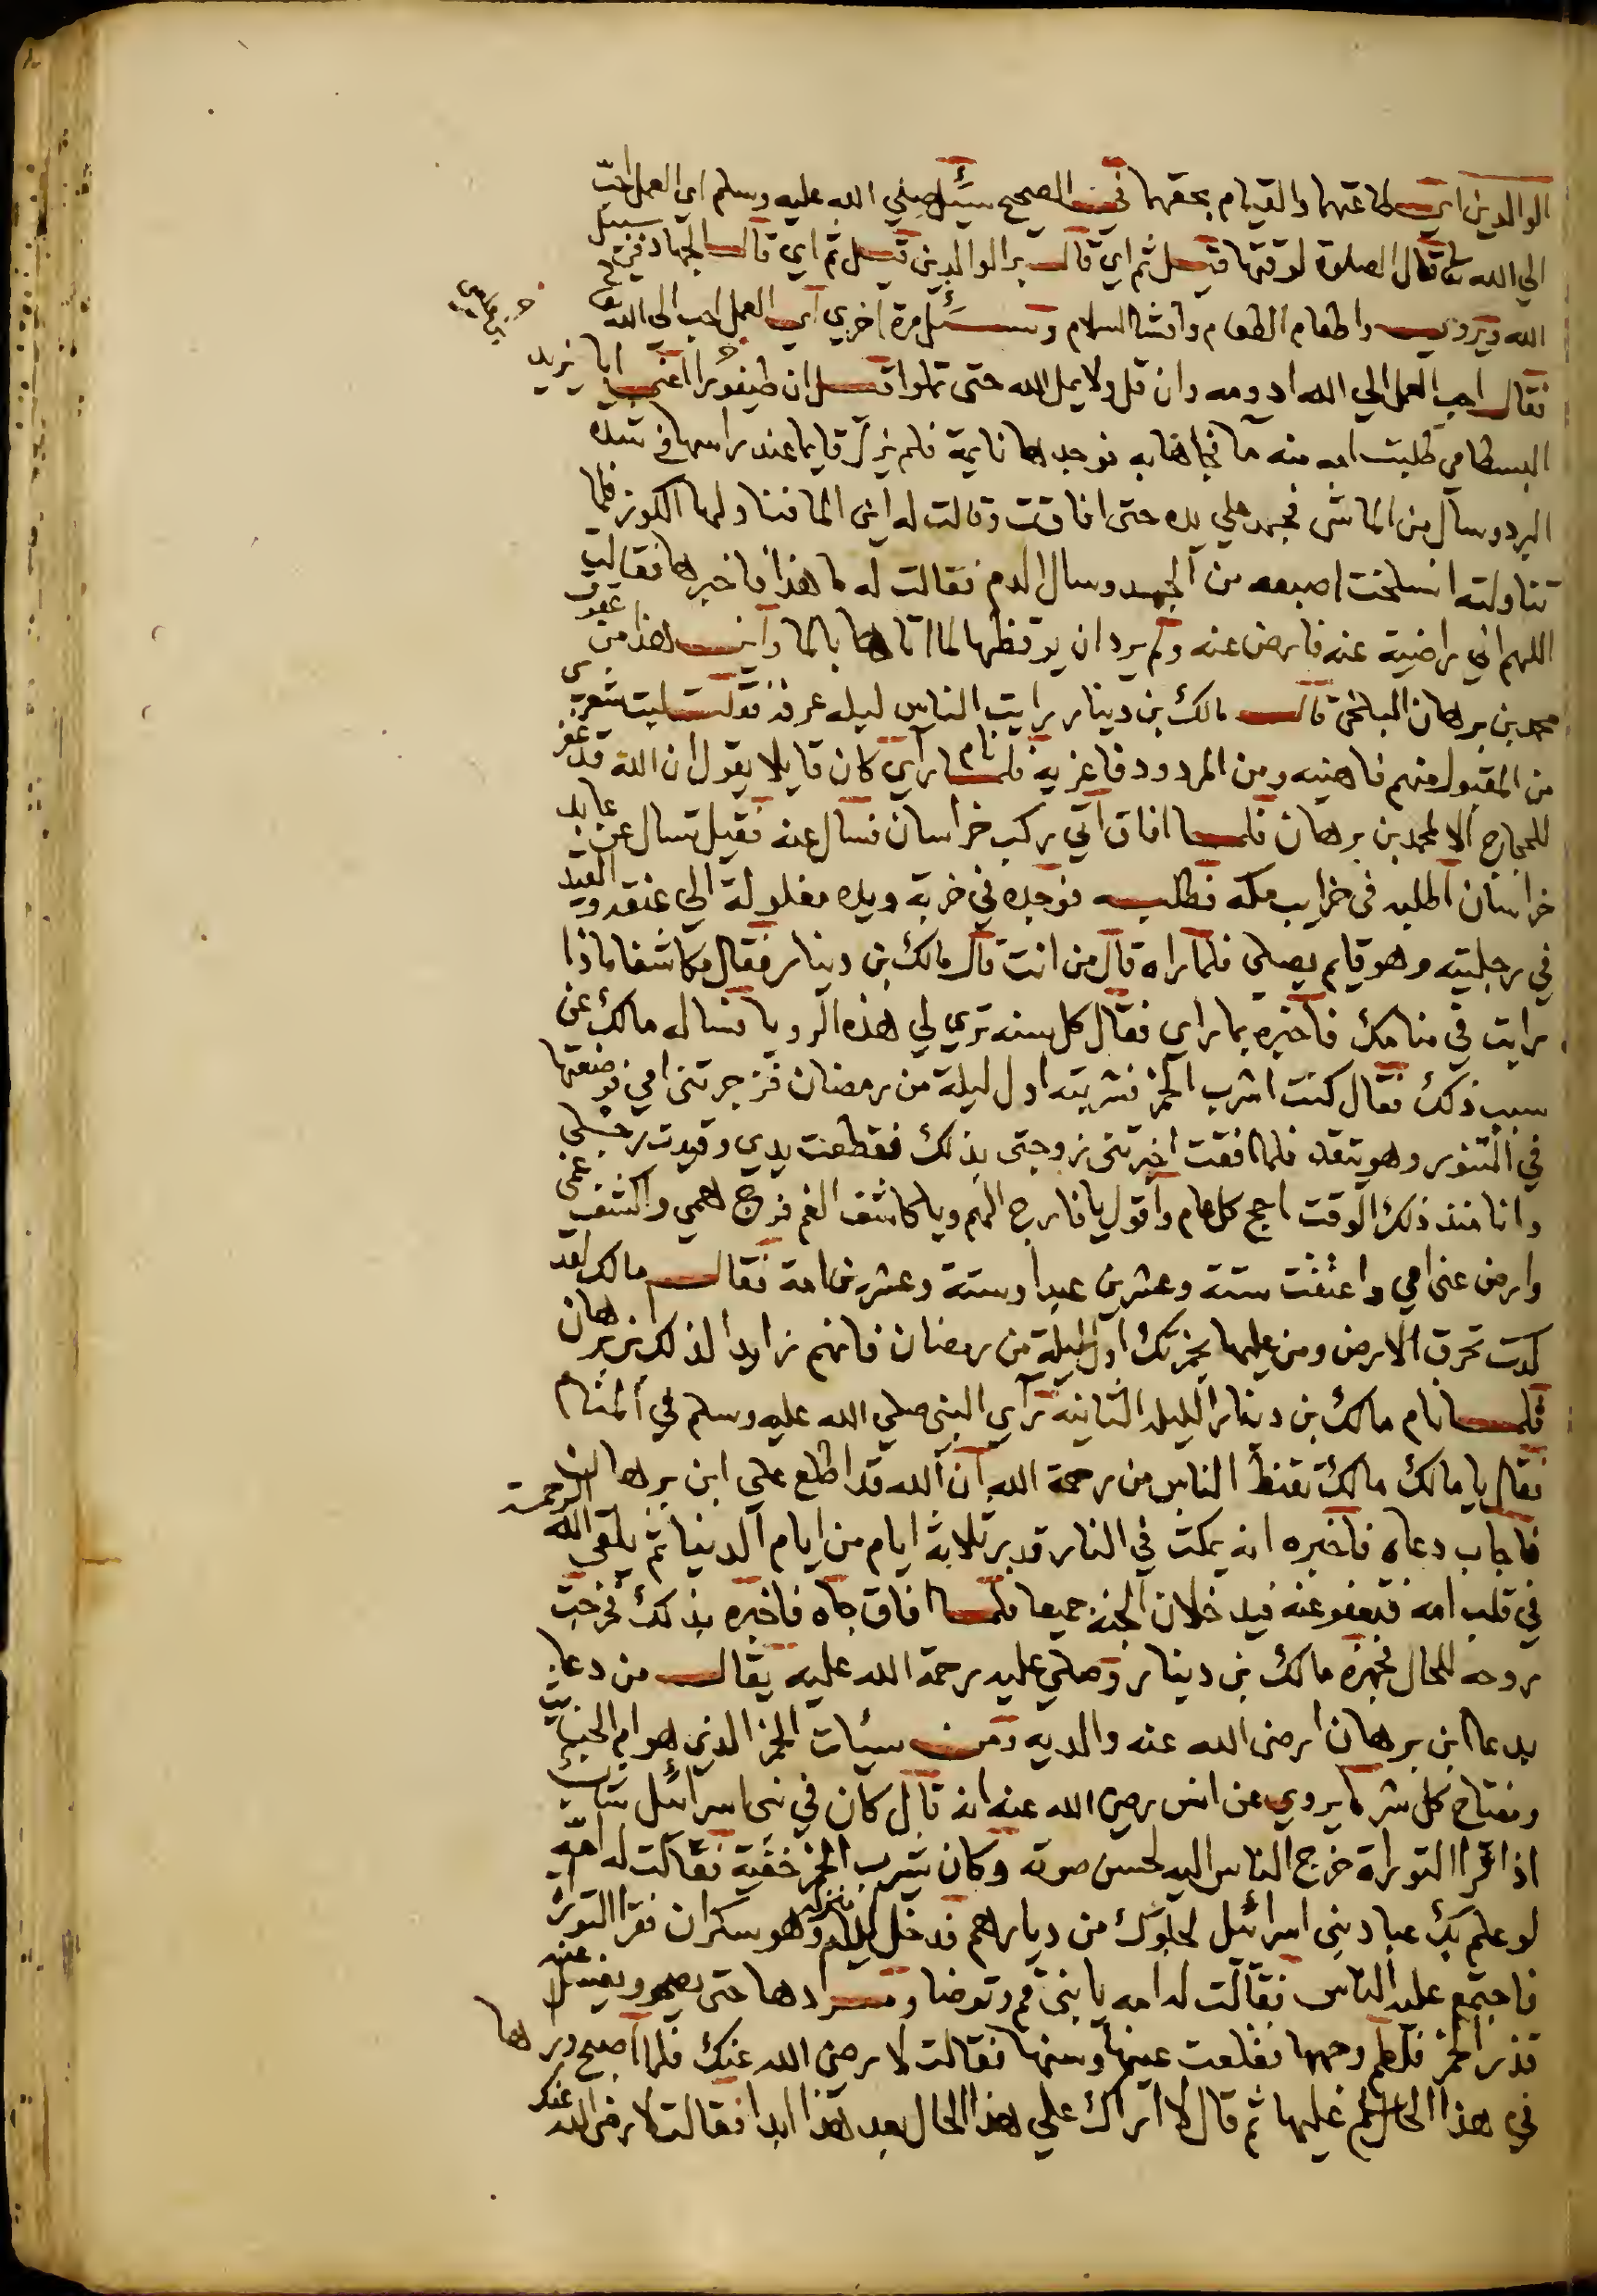 الوالدين اي طاعتهما والقيام بحقهما ففي الصحيح سئل صلي الله عليه وسلم اي العمل احب
الي الله تعالى قال الصلوة لوقتها قيل ثم اي قال بر الوالدين قيل ثم اي قال الجهاد في سبيل
الله ويروي واطعام الطعام وافشا السلام وسئل مرة اخري اي العمل احب الي الله
فقال احب العمل الي الله ادومه وان قل ولا يمل الله حتى تملوا قيل ان طيفورا اعني ابا يزيد
البسطامي طلبت امه منه ما فجاها به فوجدها نايمة فلم يزل قايما عند راسها في شدة
البرد وسال من الما شي فجمد علي يده حتى افاقت وقالت له اين الما فناولها الكوز فلما
تناولته انسلخت اصبعه من الجمد وسال الدم فقالت له ما هذا فاخبرها فقالت
اللهم اني راضية عنه فارض عنه ولم يرد ان يوقظها لما اتاها بالما واين هذا من عقوق
محمد بن برهان البلخي قال مالك بن دينار رايت الناس ليلة عرفة فقلت ليت شعري
من المقبول منهم فاهنيه ومن المردود فاعزيه فلما نام راي كان قايلا يقول ان الله قد غفر
للحجاج الا لمحمد بن برهان فلما افاق اتي ركب خراسان فسال عنه فقيل تسال عن عابد
خراسان اطلبه في خرايب مكه فطلبه فوجده في خربة ويده مغلولة الي عنقه والقيد
في رجليه وهو قايم يصلي فلما راه قال من انت قال مالك بن دينار فقال مكاشفا ماذا
رايت في منامك فاخبره بما راي فقال كل سنه تري لي هذه الرويا فساله مالك عن
سبب ذلك فقال كنت اشرب الخمر فشربته اول ليلة من رمضان فزجرتني امي فوضعتها
في التنور وهو يتقد فلما افقت اخبرتني زوجتي بذلك فقطعت يدي وقيدت رجلي
وانا منذ ذلك الوقت احج كل عام واقول يا فارج الهم ويا كاشف الغم فرج همي واكشف غمي
وارض عني امي واعتقت ستة وعشرين عبدا وستة وعشرين امة فقال مالك لقد
كدت تحرق الارض ومن عليها بخمرتك اول ليلة من رمضان فانهم زادوا لذلك بن برهان
فلما نام مالك بن دينار الليلة الثانية راي النبي صلي الله عليه وسلم في المنام
فقال يا مالك مالك تقنط الناس من رحمة الله ان الله قد اطلع علي ابن برهان
فاجاب دعاه فاخبره انه يمكث في النار قدر ثلاثة ايام من ايام الدنيا ثم يلقي الله الرحمة
في قلب امه فتعفو عنه فيدخلان الجنة جميعا فلما افاق جاه فاخبره بذلك فخرجت
روحه للحال فجهزه مالك بن دينار وصلي عليه رحمة الله عليه يقال من دعا
بدعا ابن برهان ارضى الله عنه والديه ومن سيئات الخمر الذي هو ام الخبايث
ومفتاح كل شر كما يروي عن انس رضي الله عنه انه قال كان في بني اسرائيل شاب
اذا قرا التوراة خرج الناس اليه لحسن صوته وكان يشرب الخمر خفية فقالت له امه
لو علم بك عباد بني اسرائيل لاخرجوك من ديارهم فدخل ليلة منزله وهو سكران فقرا التوراة
فاجتمع عليه الناس فقالت له امه يا بني قم وتوضا حتى يصحو ويغسل عنه
قذر الخمر فلطم وجهها فقلعت عينها وسنها فقالت لا رضي الله عنك فلما اصبح وراها
في هذا الحال سلم عليها ثم قال لا اراك علي هذا الحال بعد هذا ابدا فقالت لا رضي الله عنك